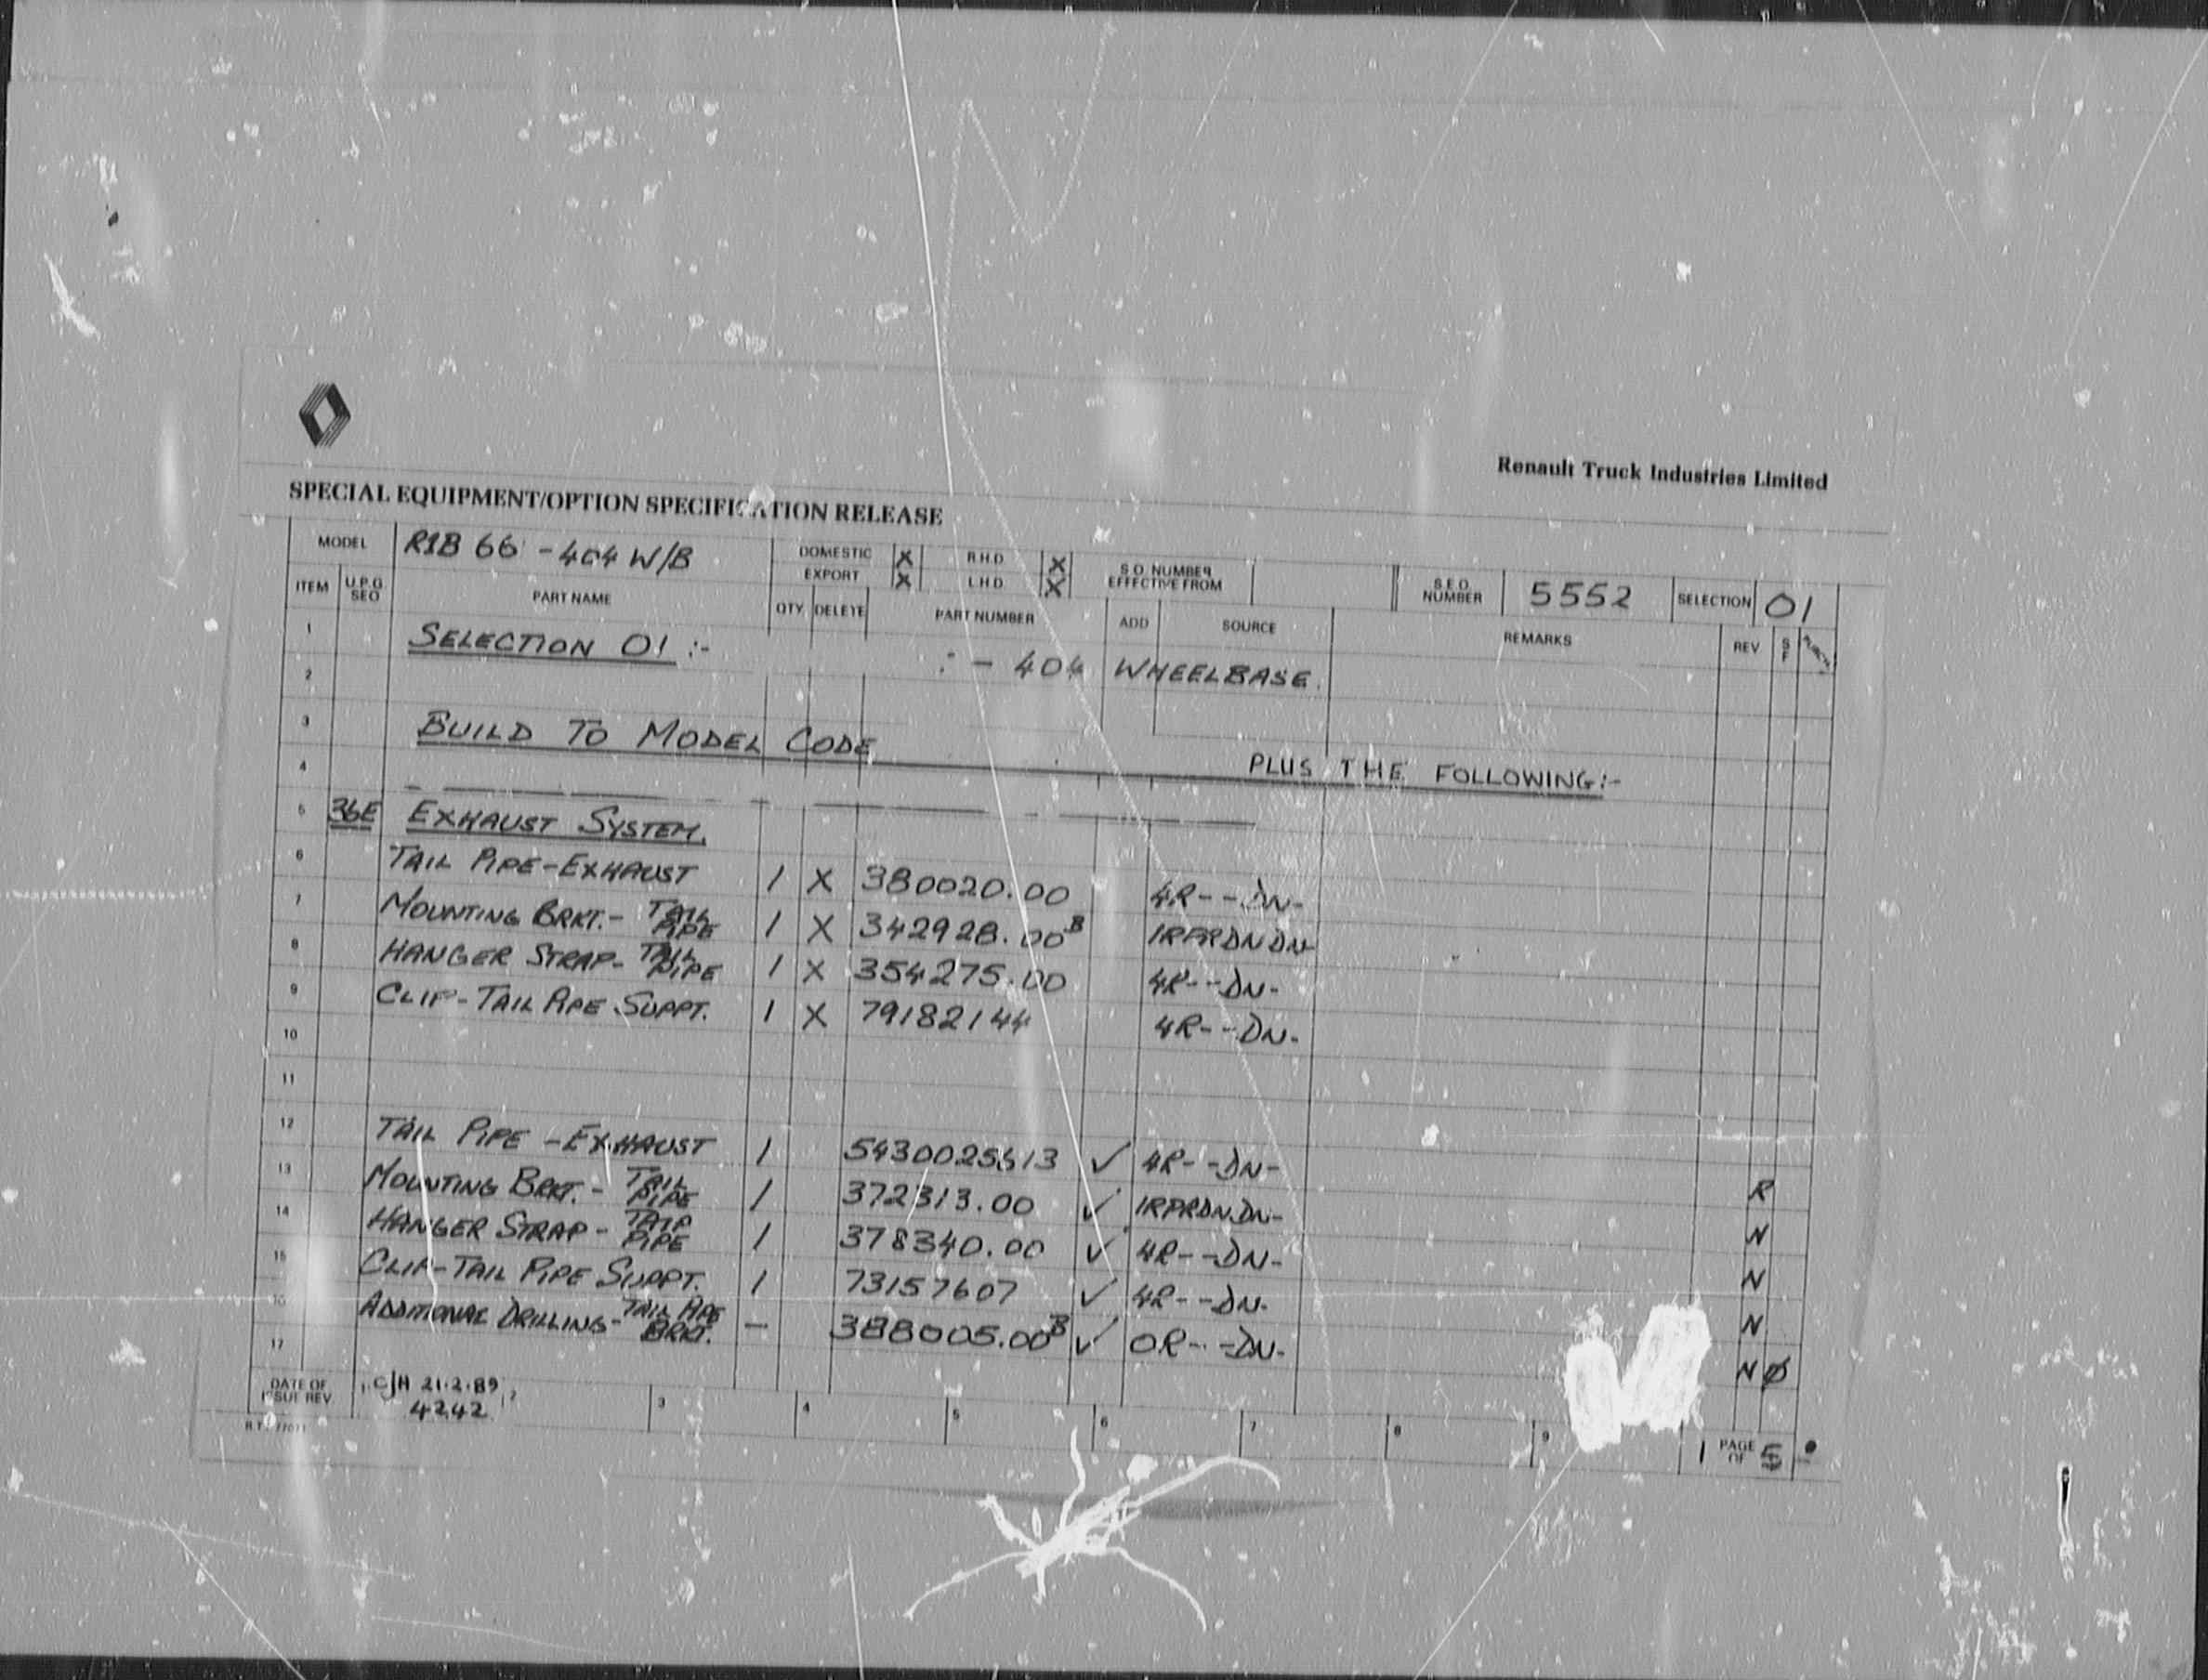 Renault Truck Industries Limited
SPECIAL EQUIPMENT/OPTION SPECIFICATION RELEASE
MODEL R1B 66 - 404 W/B DOMESTIC X R.H.D X S.O. NUMBER EFFECTIVE FROM S.E.O. NUMBER 5552 SELECTION 01
EXPORT X L.H.D X
ITEM U.P.G. SEQ PART NAME QTY DELETE PART NUMBER ADD SOURCE REMARKS REV S F
1 SELECTION 01 :- : - 404 WHEELBASE.
2
3 BUILD TO MODEL CODE PLUS THE FOLLOWING:-
4
5 36E EXHAUST SYSTEM.
6 TAIL PIPE - EXHAUST 1 X 380020.00 4R - - DN -
7 MOUNTING BRKT. - TAIL PIPE 1 X 342928.00B 1RPRDNDN-
8 HANGER STRAP - TAIL PIPE 1 X 354275.00 4R - - DN -
9 CLIP - TAIL PIPE SUPPT. 1 X 79182144 4R - - DN -
10
11
12 TAIL PIPE - EXHAUST 1 ✓ 4R - - DN - R
13 MOUNTING BRKT. - TAIL PIPE 1 372313.00 ✓ 1RPRDNDN- N
14 HANGER STRAP - PIPE 1 378340.00 ✓ 4R - - DN - N
15 CLIP - TAIL PIPE SUPPT. 1 73157607 ✓ 4R - - DN - N
16 ADDITIONAL DRILLING - TAIL PIPE BRKT. - 388005.00B ✓ 0R - - DN - N Ø
17
DATE OF ISSUE REV 1 CJH 21.2.89 4242 2 3 4 5 6 7 8 9 1 PAGE OF 5